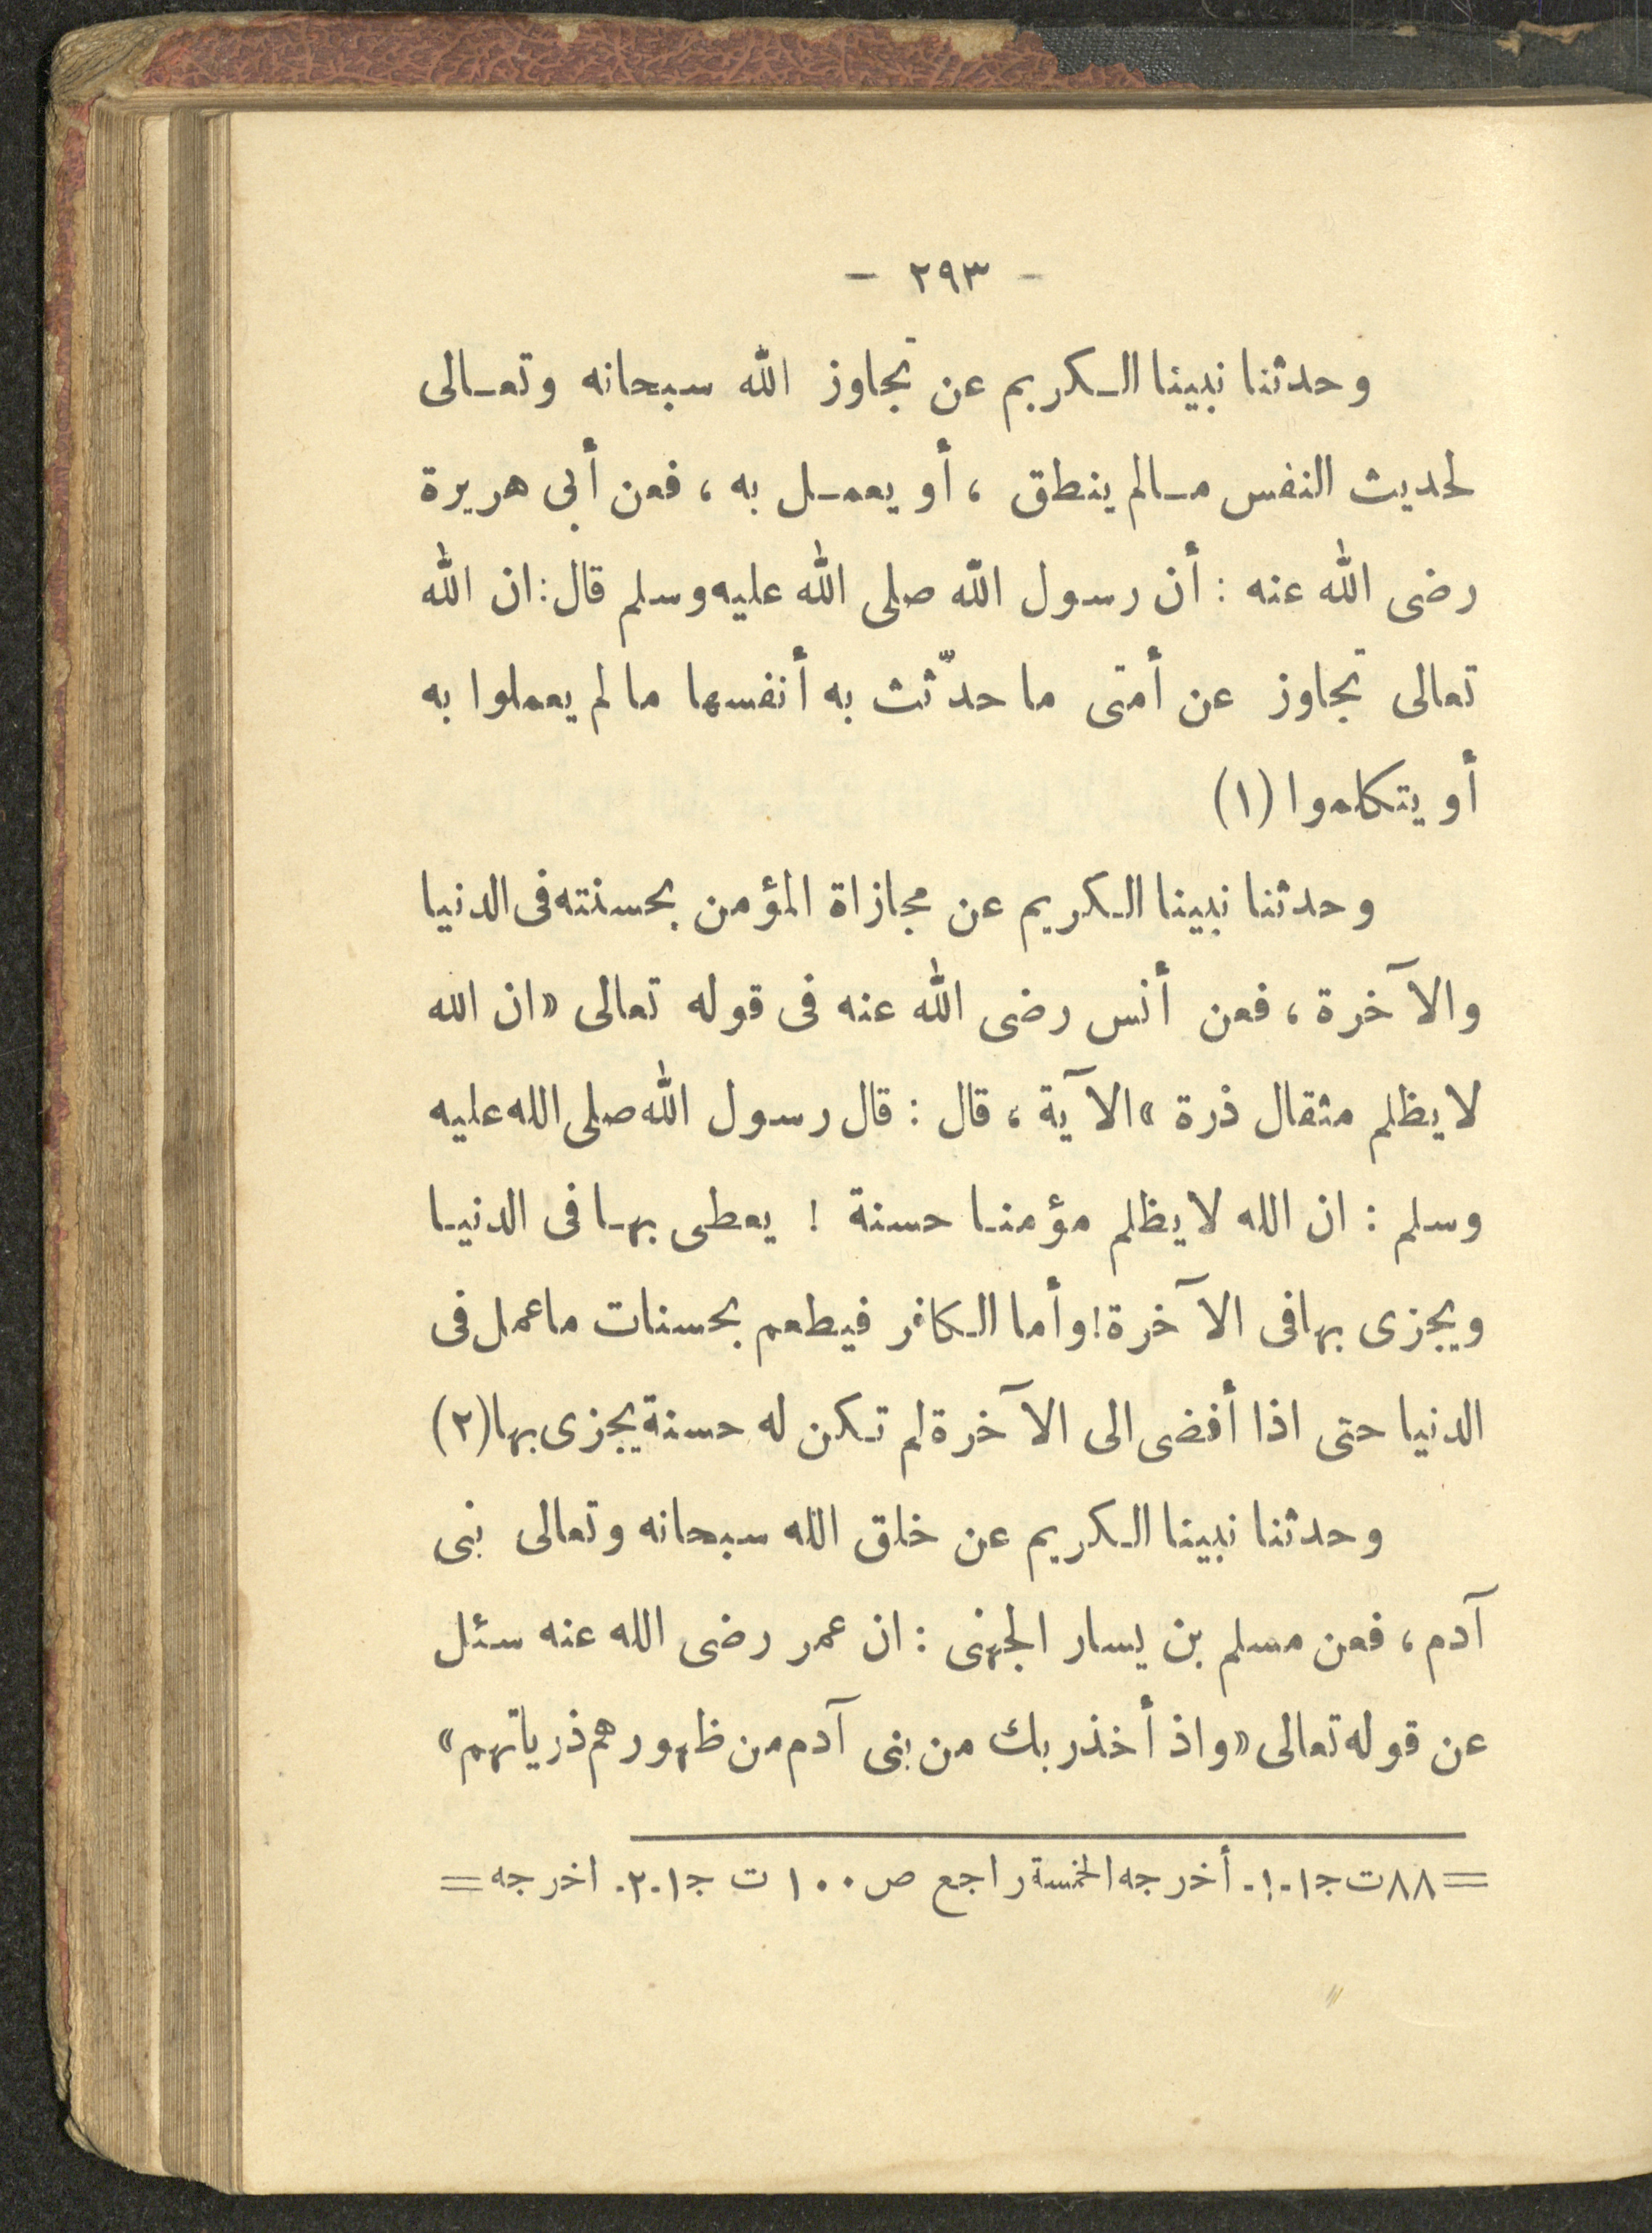 - ٢٩٣ -
وحدثنا نبينا الكريم عن تجاوز الله سبحانه وتعالى
لحديث النفس مالم ينطق ، أو يعمل به ، فعن أبى هريرة
رضى الله عنه : أن رسول الله صلى الله عليه وسلم قال : ان الله
تعالى تجاوز عن أمتى ما حدّثت به أنفسها ما لم يعملوا به
أو يتكلموا (١)
وحدثنا نبينا الكريم عن مجازاة المؤمن بحسنته فى الدنيا
والآخرة ، فعن أنس رضى الله عنه فى قوله تعالى «ان الله
لا يظلم مثقال ذرة » الآية ، قال : قال رسول الله صلى الله عليه
وسلم : ان الله لا يظلم مؤمنا حسنة ! يعطى بها فى الدنيا
ويجزى بها فى الآخرة ! وأما الكافر فيطعم بحسنات ما عمل فى
الدنيا حتى اذا أفضى الى الآخرة لم تكن له حسنة يجزى بها (٢)
وحدثنا نبينا الكريم عن خلق الله سبحانه وتعالى بنى
آدم ، فعن مسلم بن يسار الجهنى : ان عمر رضى الله عنه سئل
عن قوله تعالى «واذ أخذ ربك من بنى آدم من ظهورهم ذرياتهم»
= ٨٨ ت ج١ -١- أخرجه الخمسة راجع ص ١٠٠ ت ج١ -٢- اخرجه =